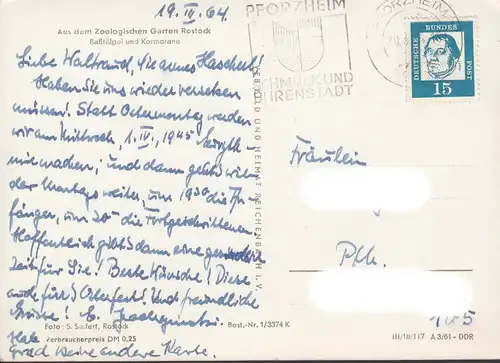 19. III. 64
Aus dem Zoologischen Garten Rostock
Baßtölpel und Kormorane
Liebe Waltraud, Sie armes Hascherl!
Haben Sie uns wieder versetzen
müssen! Statt Ostermontag werden
wir am Mittwoch, 1. IV., 1945
mitmachen; und dann geht's wieder
der Montags weiter, um 1930 die An-
fänger, um 20 die Fortgeschrittenen.
Hoffentlich gibt's dann eine
Zeit für Sie! Beste Wünsche! Diese
auch fürs Osterfest! Und freundliche
Grüße! E.
Foto: S. Seifert, Rostock
Best.-Nr. 1/3374 K
Verbraucherpreis DM 0,25
Hab
grad keine andere Karte.
UND HEIMAT REICHENBACH I. V.
PFORZHEIM
SCHMUCK UND
UHRENSTADT
PFORZHEIM
DEUTSCHE BUNDESPOST
15
Fräulein
Pfh.
III/18/117 A 3/61 - DDR